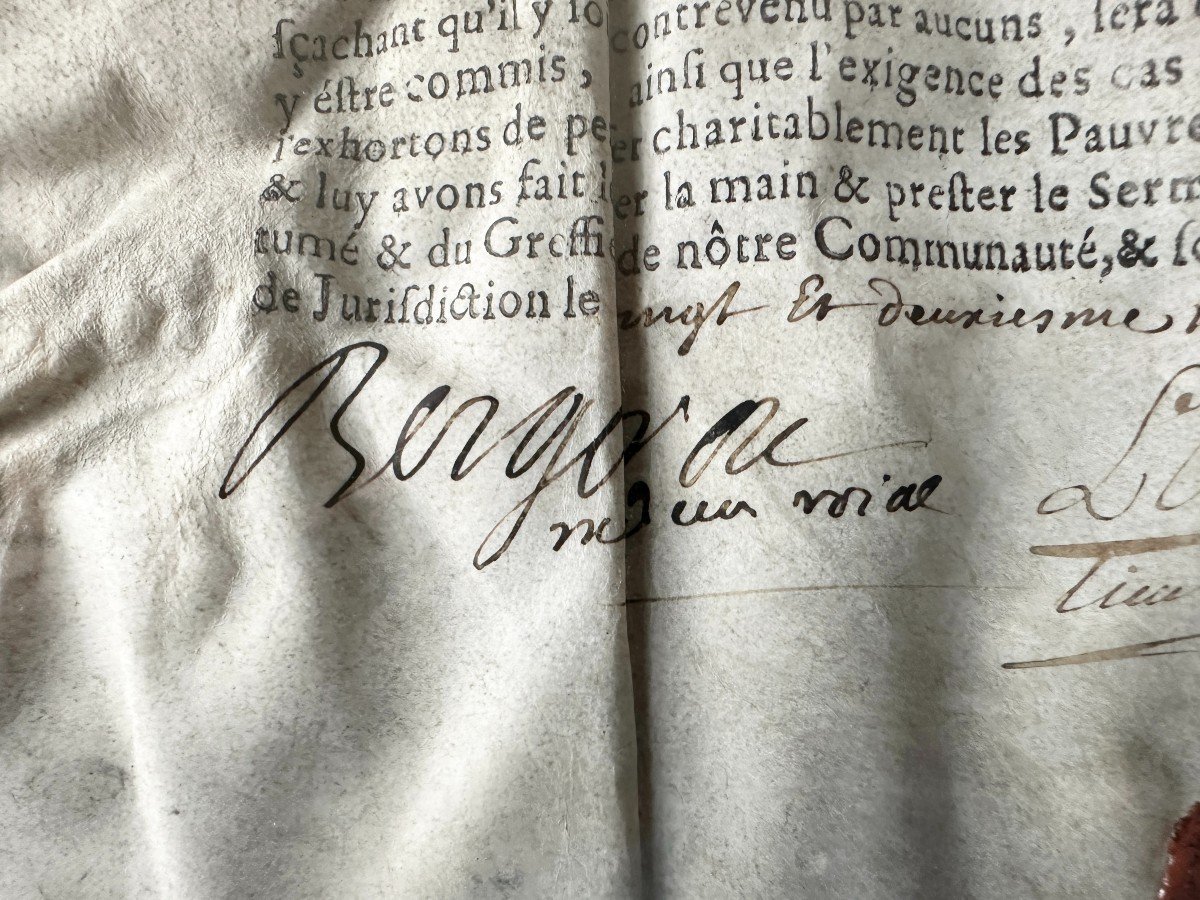 ſçachant qu'il y ſo contrevenu par aucuns, ſera
y éſtre commis, ainſi que l'exigence des cas
l'exhortons de pe er charitablement les Pauvre
& luy avons fait l er la main & preſter le Serm
tumé & du Greffi de nôtre Communauté, & ſc
de Juriſdiction le vingt Et deuxiesme
roial